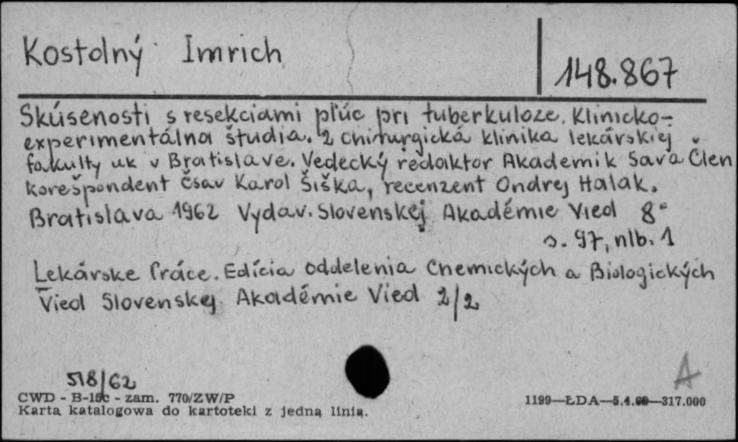 Kostolný Imrich
148.867
Skúsenosti s resekciami pľúc pri tuberkuloze. Klinicko-
experimentálna študia. 2 chirurgická klinika lekárskiej
fakulty uk v Bratislave. Vedecký redaktor Akademik Sava Člen
korešpondent Čsav Karol Šiška, recenzent Ondrej Halak.
Bratislava 1962 Vydav. Slovenskej Akadémie Vied 8°
s. 97, nlb. 1
Lekárske Práce. Edícia oddelenia Chemických a Biologických
Vied Slovenskej Akadémie Vied 2/2
518/62
A
CWD - B-15c - zam. 770/ZW/P
Karta katalogowa do kartoteki z jedną linią.
1199—ŁDA—5.4.60—317.000